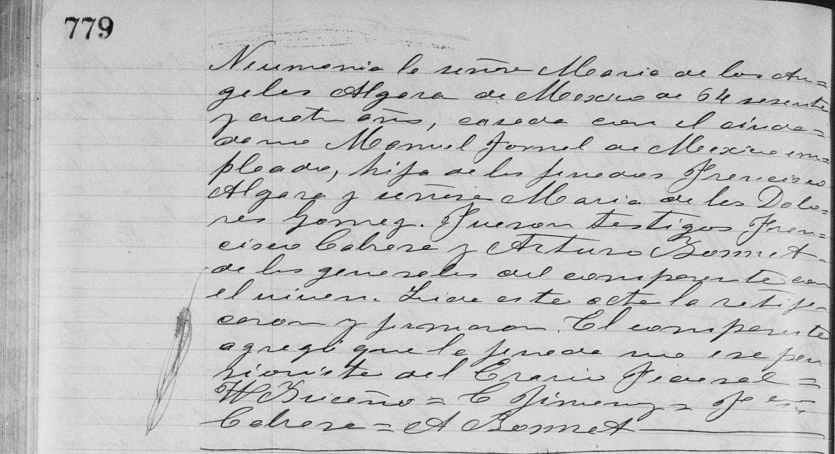 779
Neumonia la señora Maria de los An=
geles Algara de Mexico de 64 sesenta
y cuatro años, casada con el ciuda=
dano Manuel de Mexico em=
pleado, hija de los finados Francisco
Algara y señora Maria de los Dolo=
res Gomez. Fueron testigos Fran=
cisco Cabrera y Arturo Bonnet
de las generales del compareciente con
el viven. Leida esta acta la ratifi
caron y firmaron. El compareciente
agregó que la finada no era pen
sionista del Erario Federal =
Briceño = C Jimenez = F
Cabrera = A Bonnet